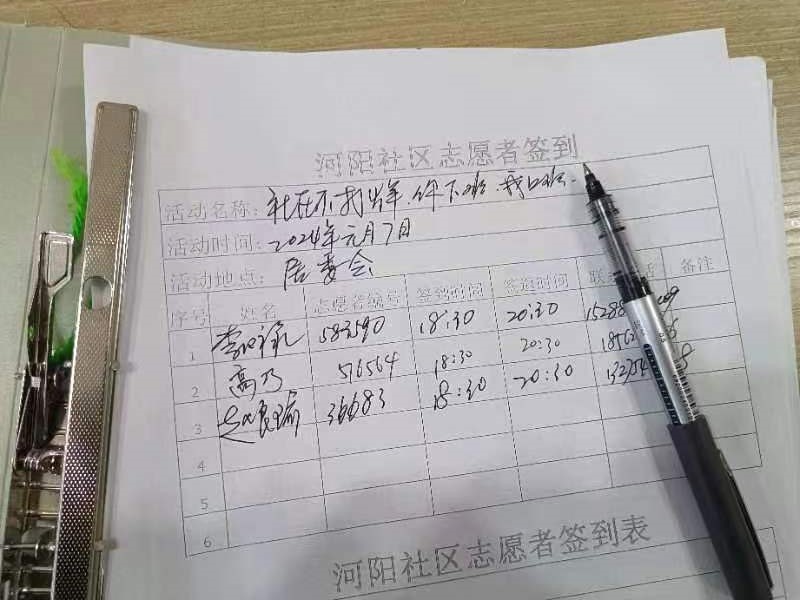 河阳社区志愿者签到
活动名称：社在不打烊，你下班 我
活动时间：2024年元月7日
活动地点：居委会
序号 姓名 志愿者编号 签到时间 签退时间 联 备注
1 李 583590 18:30 20:30 15288
2 高乃 516564 18:30 20:30
3 赵良瑜 36683 18:30 20:30
4
5
6
河阳社区志愿者签到表